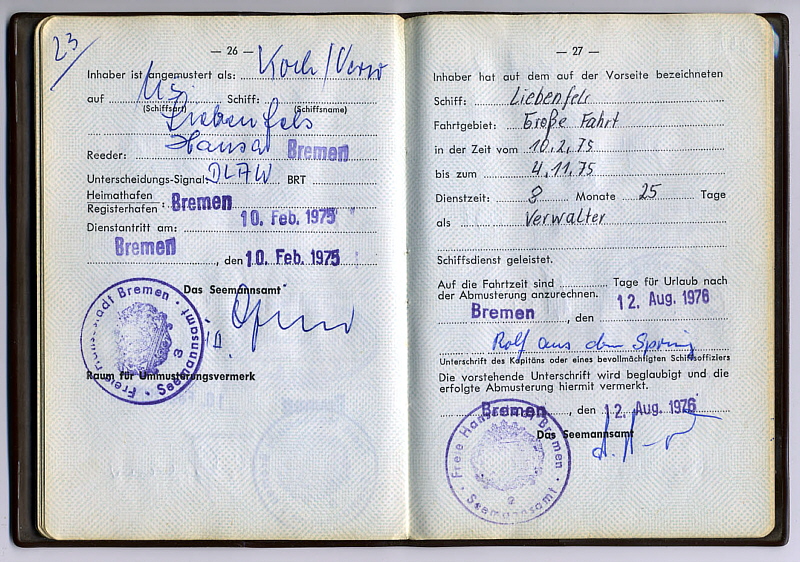 23
— 26 —
Inhaber ist angemustert als: Koch/Verw
auf MS Schiff:
(Schiffsart) (Schiffsname)
Liebenfels
Reeder: Hansa Bremen
Unterscheidungs-Signal: DLAW BRT
Heimathafen
Registerhafen : Bremen
Dienstantritt am: 10. Feb. 1975
Bremen, den 10. Feb. 1975
Das Seemannsamt
Freie Hansestadt Bremen · Seemannsamt · 3
Raum für Ummusterungsvermerk
— 27 —
Inhaber hat auf dem auf der Vorseite bezeichneten
Schiff: Liebenfels
Fahrtgebiet: Große Fahrt
in der Zeit vom 10.2.75
bis zum 4.11.75
Dienstzeit: 8 Monate 25 Tage
als Verwalter
Schiffsdienst geleistet.
Auf die Fahrtzeit sind Tage für Urlaub nach
der Abmusterung anzurechnen.
Bremen, den 12. Aug. 1976
Rolf aus dem Spring
Unterschrift des Kapitäns oder eines bevollmächtigten Schiffsoffiziers
Die vorstehende Unterschrift wird beglaubigt und die
erfolgte Abmusterung hiermit vermerkt.
Bremen, den 12. Aug. 1976
Das Seemannsamt
Freie Hansestadt Bremen · Seemannsamt · 2